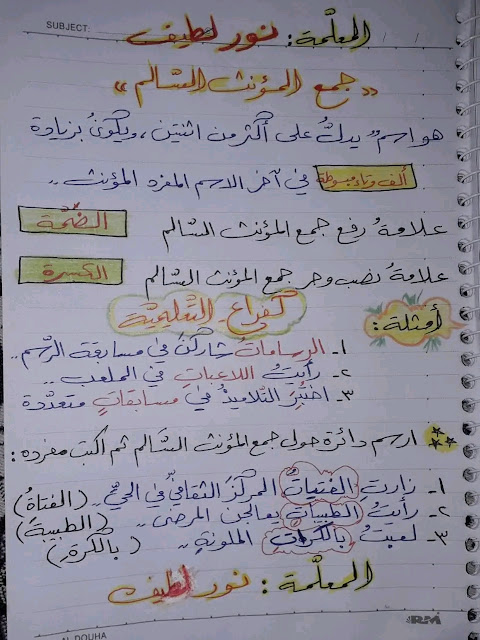 SUBJECT:
المعلّمة: نور لطيف
«جمع المؤنث السّالم»
هو اسم" يدلّ على أكثر من اثنتين، ويكونُ بزيادة
ألف وتاء مبسوطة في آخر الاسم المفرد المؤنث..
علامةُ رفع جمع المؤنث السّالم الضّمّة
علامةُ نصب وجر جمع المؤنث السّالم الكسرة
كفراع التّعليميّة
أمثلة:
١- الرساماتُ شاركْنَ في مسابقة الرّسم..
٢- رأيتُ اللاعباتِ في الملعب..
٣- اختُبِرَ التّلاميذُ في مسابقاتٍ متعدّدة
ارسم دائرة حول جمع المؤنث السّالم ثم اكتب مفرده:
١- زارت الفتياتُ المركزَ الثقافيَّ في الحيّ.. (الفتاةُ)
٢- رأيتُ الطبيباتِ يعالجن المرضى.. (الطبيبةَ)
٣- لعبتُ بالكراتِ الملونةِ.. (بالكرةِ)
المعلّمة: نور لطيف
AL DOUHA
RM